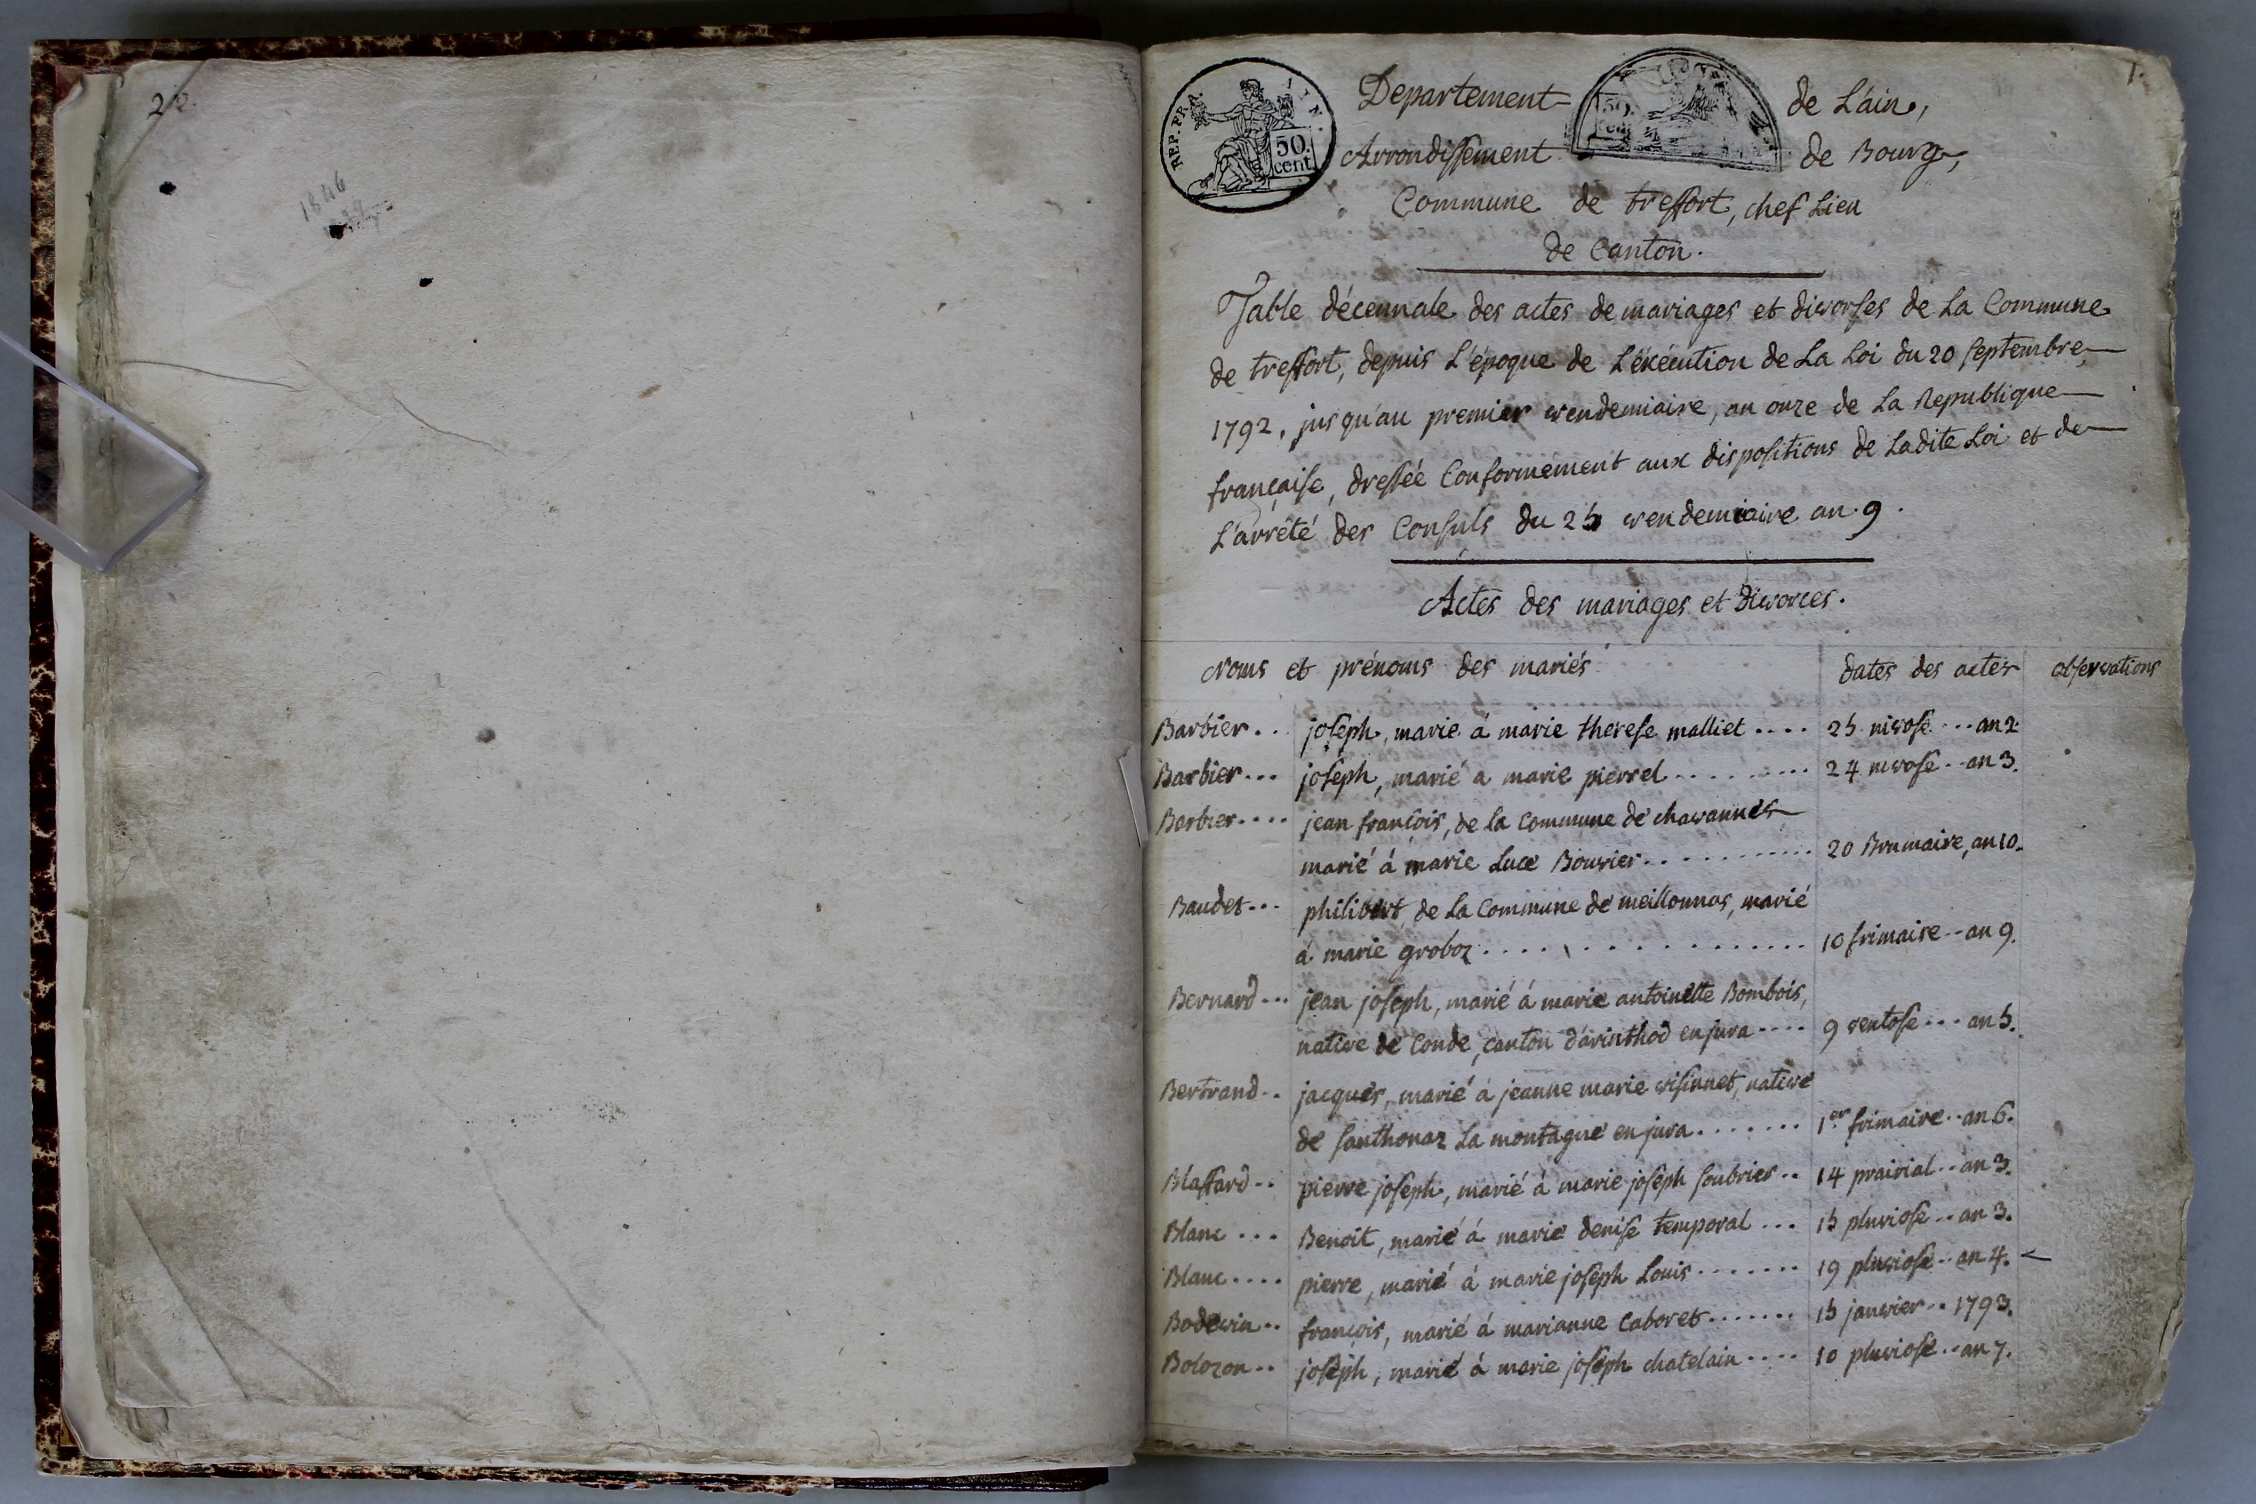 22.
1846
REP. FRA. 1 IN.
50.
cent.
1.
Departement de L'ain,
Arrondissement de Bourg,
Commune de treffort, chef Lieu
de Canton.
Table décennale des actes de mariages et divorses de La Commune
de treffort, depuis L'époque de L'éxécution de La Loi du 20 septembre
1792, jusqu'au premier vendemiaire, an onze de La Republique
française, dressée Conformement aux dispositions de Ladite Loi et de
L'arrêté des Consuls du 25 vendemiaire an 9.
Actes des mariages et Divorces.
Noms et prénoms des mariés dates des actes observations
Barbier... joseph, marie á marie therese malliet .... 25 nivose ... an 2.
Barbier... joseph, marié a marie pierrel ......... 24 nivose .. an 3.
Barbier.... jean françois, de la Commune de chavannes
marié á marie Luce Bouvier........... 20 Brumaire, an 10.
Baudet... philibert de La Commune de meillonnas, marié
á marie groboz.................. 10 frimaire .. an 9.
Bernard... jean joseph, marié á marie antoinette Bombois,
native de Conde, canton d'arinthod en jura .... 9 ventose ... an 5.
Bertrand.. jacques, marié á jeanne marie visinnet, native
de santhonaz La montagne en jura....... 1er frimaire .. an 6.
Blaffard.. pierre joseph, marié á marie joseph soubrier.. 14 prairial .. an 3.
Blanc ... Benoit, marié á marie denise temporal ... 15 pluviose .. an 3.
Blanc.... pierre, marié á marie joseph Louis ....... 19 pluviose .. an 4.
Bodevin.. françois, marié á marianne Caboret....... 15 janvier .. 1793.
Bolozon.. joseph, marié á marie joseph chatelain .... 10 pluviose .. an 7.